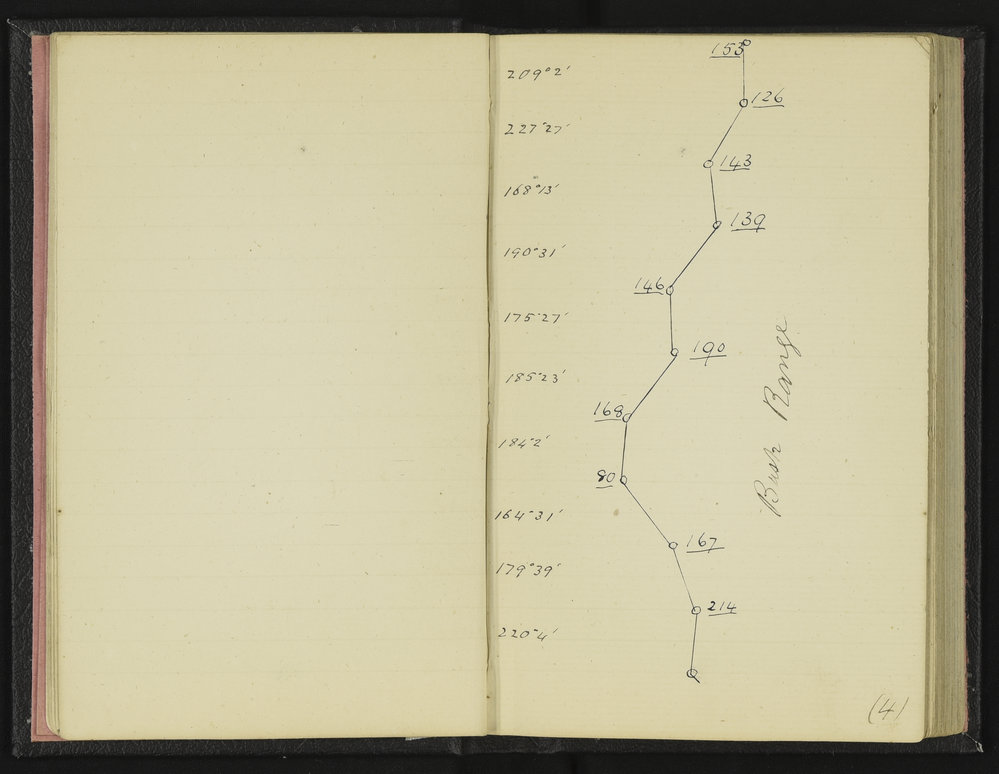 153
209°2'
126
227°27'
143
168°13'
139
190°31'
146
175°27'
190
185°23'
168
184°2'
80
164°31'
167
179°39'
214
220°4'
Busk Range
(4)